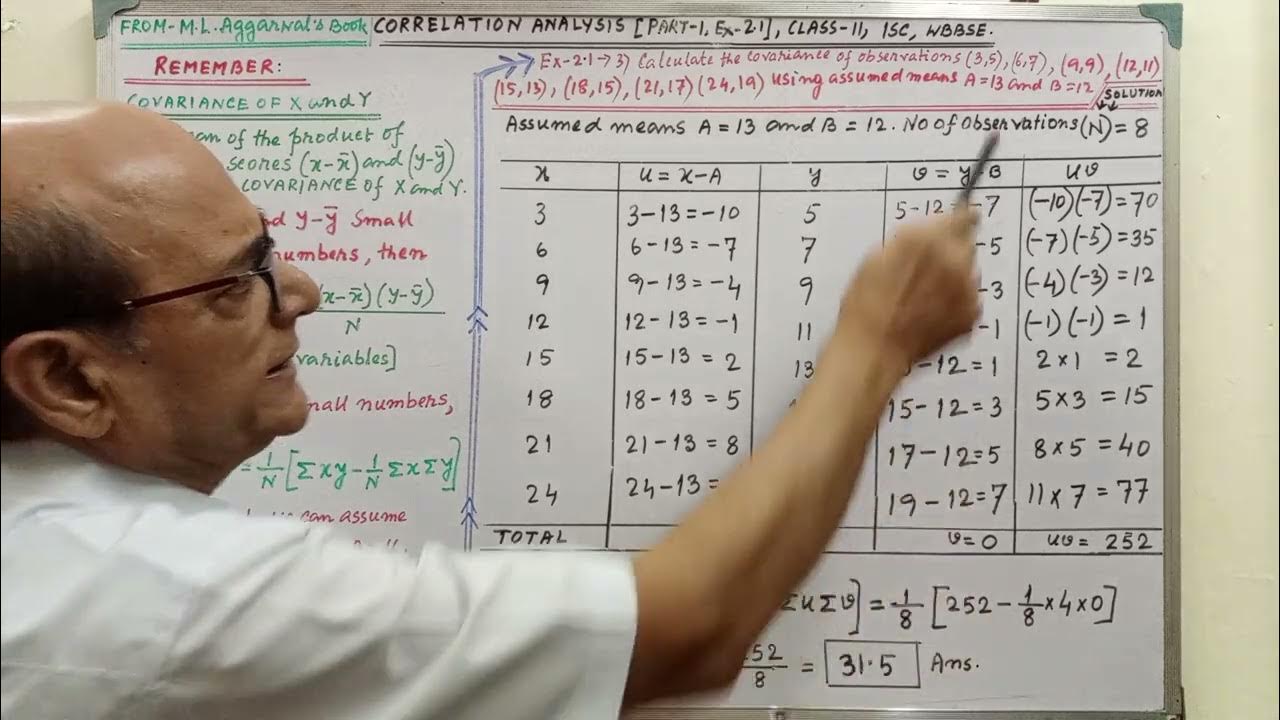 FROM-M.L.Aggarwal's Book CORRELATION ANALYSIS [PART-1, Ex-2.1], CLASS-11, ISC, WBBSE.
REMEMBER:
COVARIANCE OF X and Y
of the product of
scores (x-x̄) and (y-ȳ)
COVARIANCE OF X and Y.
y-ȳ Small
numbers, then
(x-x̄)(y-ȳ)
N
variables]
numbers,
= 1/N [Σxy - 1/N Σx Σy]
can assume
Ex-2.1→3) Calculate the covariance of observations (3,5),(6,7), (9,9), (12,11)
(15,13), (18,15), (21,17) (24,19) using assumed means A=13 and B=12
SOLUTION
Assumed means A = 13 and B = 12. No of observations (N) = 8
x u = x-A y v = y-B uv
3 3-13=-10 5 5-12=-7 (-10)(-7)=70
6 6-13=-7 7 -5 (-7)(-5)=35
9 9-13=-4 9 -3 (-4)(-3)=12
12 12-13=-1 11 -1 (-1)(-1)=1
15 15-13=2 13 -12=1 2×1=2
18 18-13=5 15-12=3 5×3=15
21 21-13=8 17-12=5 8×5=40
24 24-13= 19-12=7 11×7=77
TOTAL v=0 uv=252
ΣuΣv] = 1/8 [252 - 1/8 ×4×0]
252/8 = 31.5 Ans.